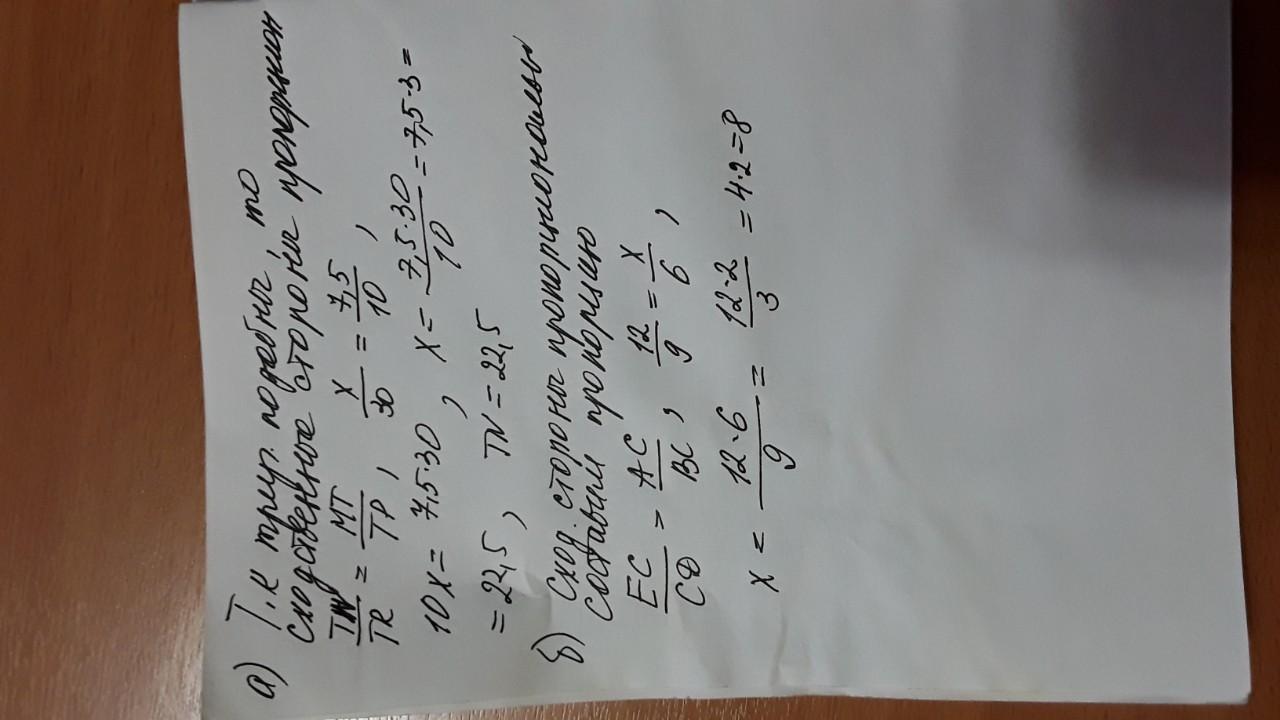 а) Т.к треуг. подобны, то
сходственные стороны пропорцион
TN/TR = MT/TP, x/30 = 7,5/10,
10x = 7,5·30, x = 7,5·30/10 = 7,5·3 =
= 22,5, TN = 22,5
б) Сход. стороны пропорциональны
составим пропорцию
EC/CD = AC/BC, 12/9 = x/6,
x = 12·6/9 = 12·2/3 = 4·2=8